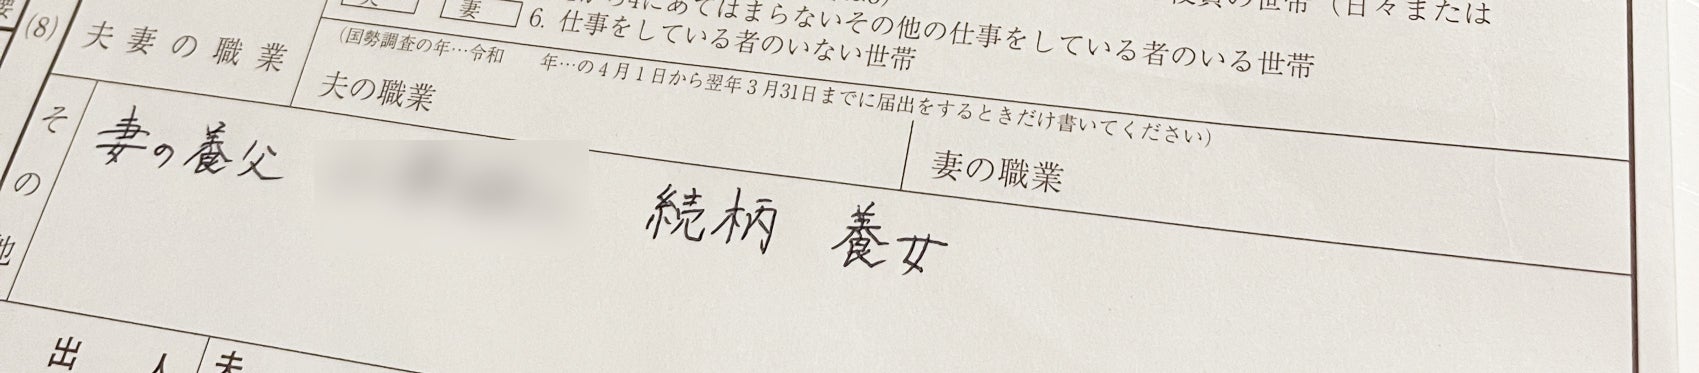 妻
6. 仕事をしている者のいない世帯
4にあてはまらないその他の仕事をしている者のいる世帯
(日々または
(8)
夫妻の職業
(国勢調査の年…令和 年…の4月1日から翌年3月31日までに届出をするときだけ書いてください)
夫の職業
妻の職業
その他
妻の養父
続柄 養女
出 人
夫